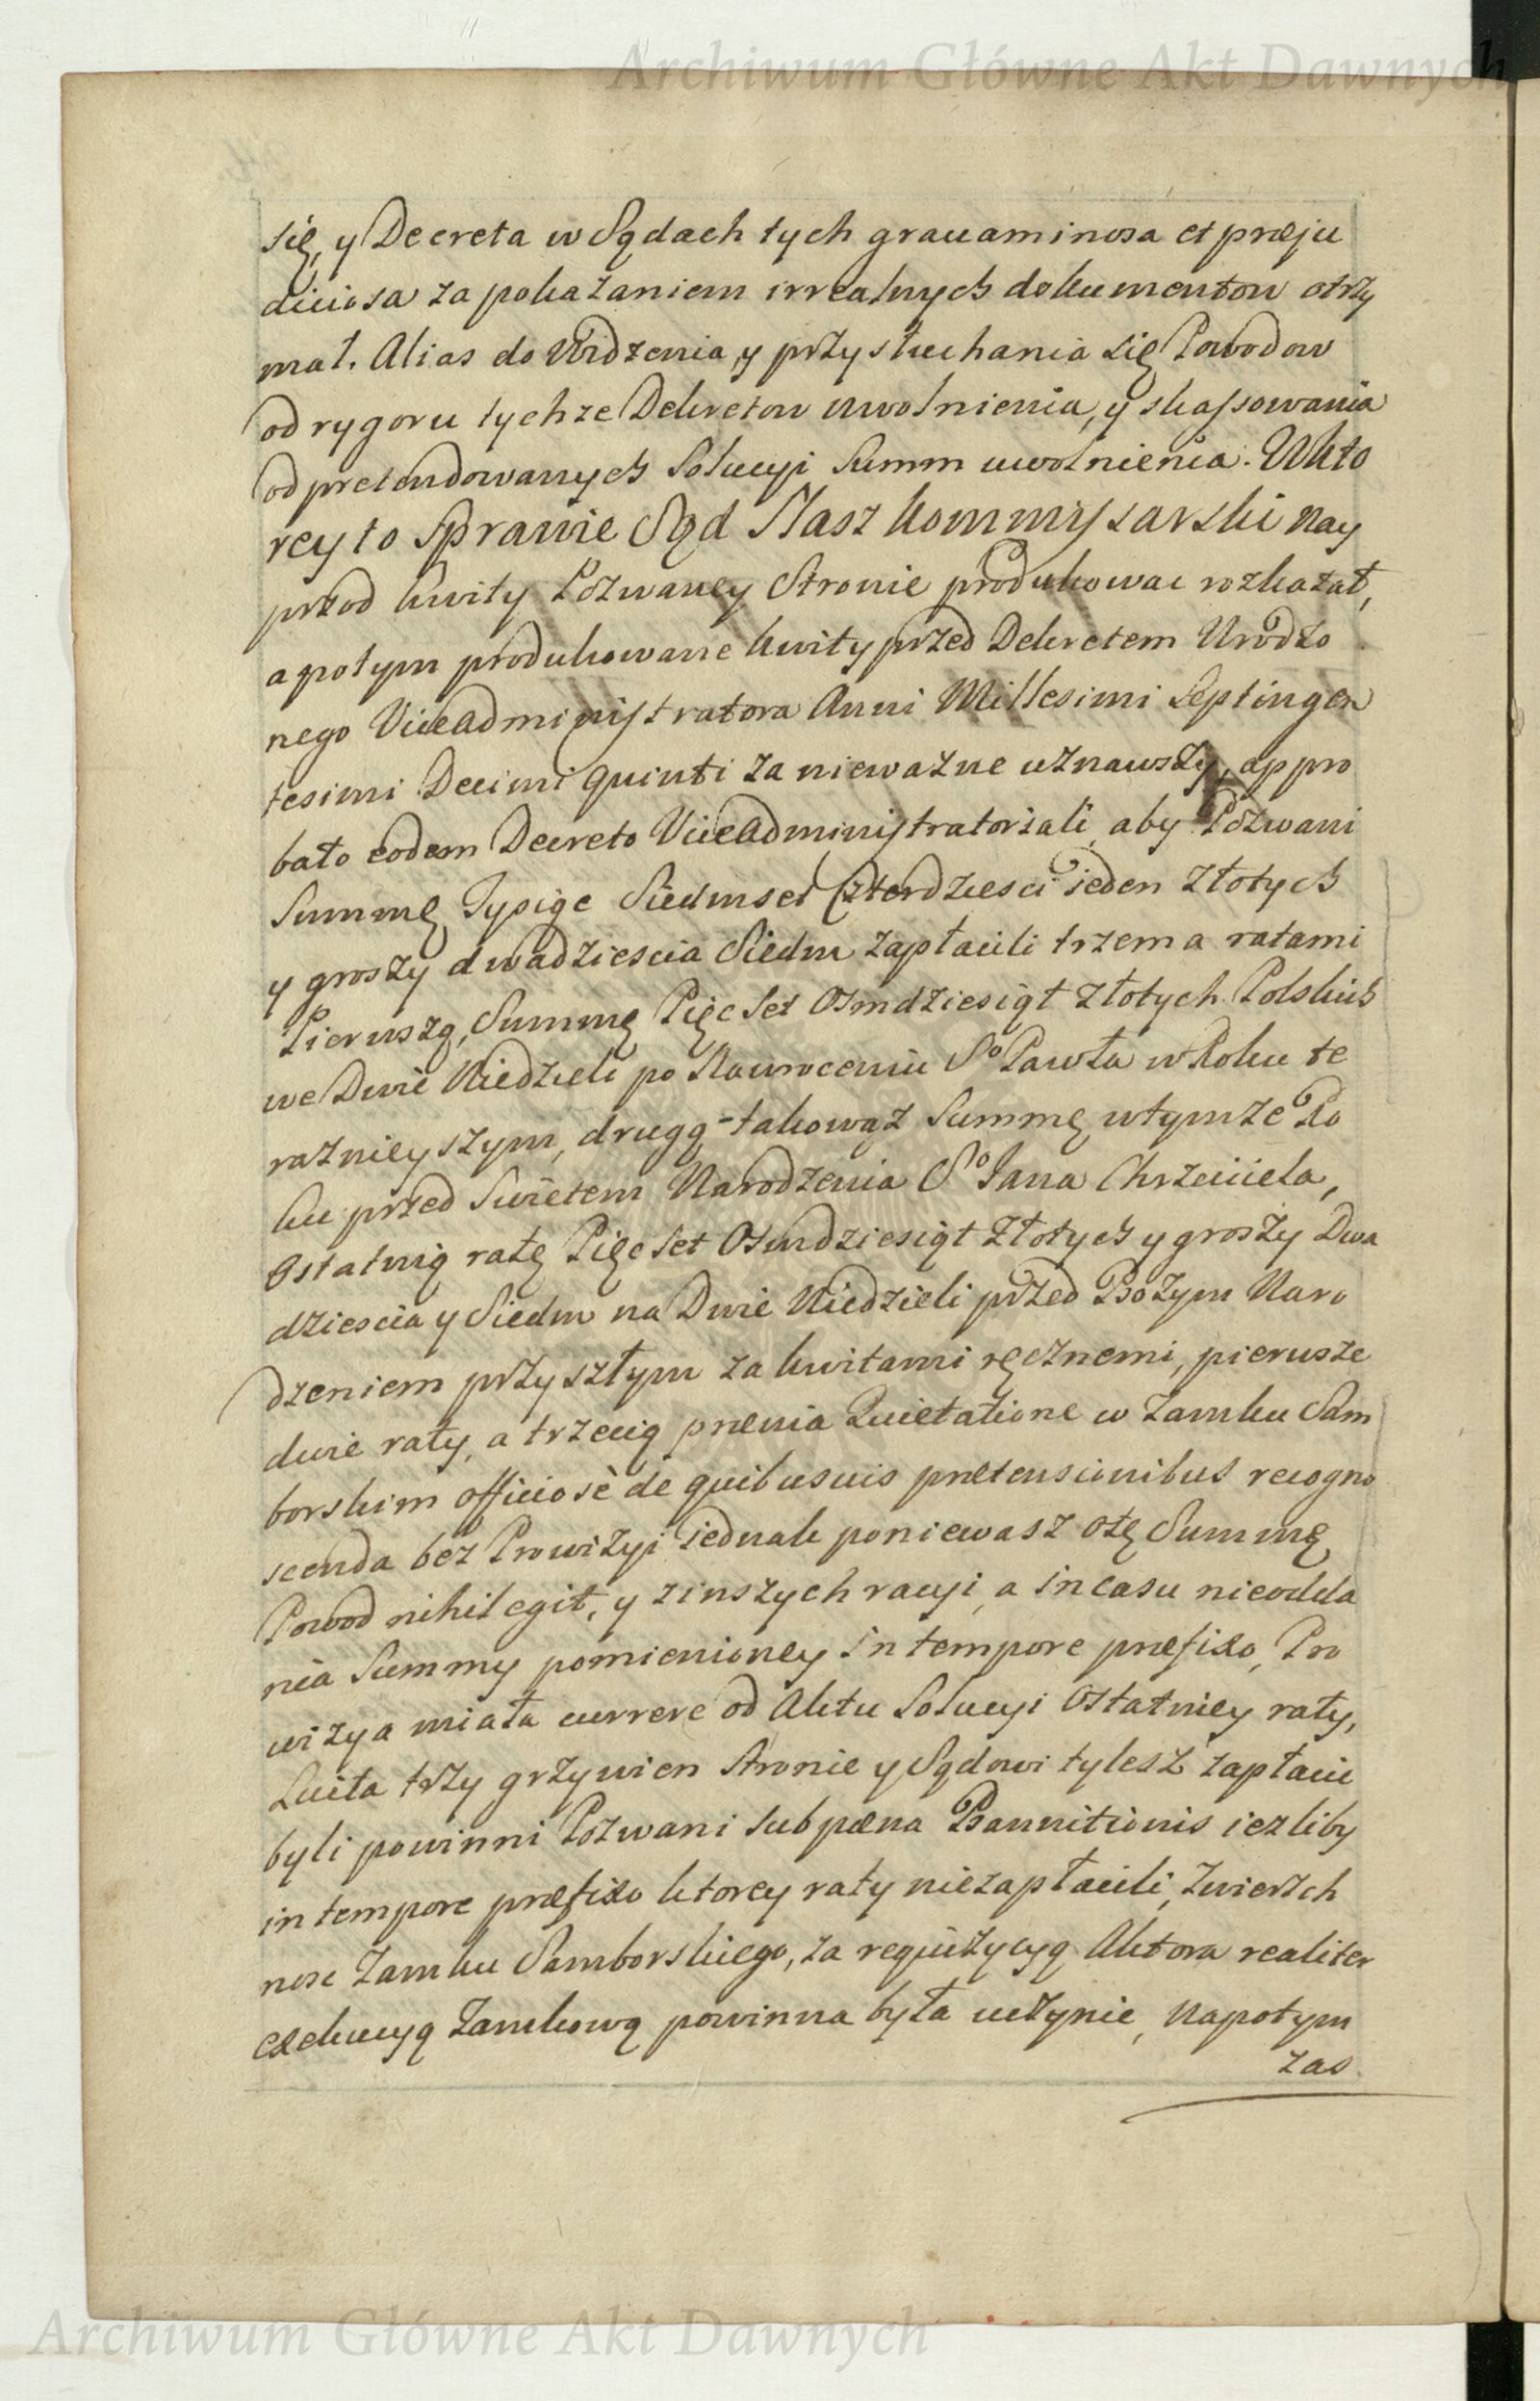 Archiwum Główne Akt Dawnych
się, y Decreta w Sądach tych grauaminosa et præju
diciosa za pokazaniem irrealnych dokumentow otrzy
mał. Alias do Widzenia, y przysłuchania się Powodow
od rygoru tychze Dekretow uwolnienia, y skassowania
od pretendowanych Solucyi Summ uwolnienia. W kto
rey to Sprawie Sąd Nasz Kommissarski nay
przod kwity Pozwaney Stronie produkować rozkazał,
a potym produkowane kwity przed Dekretem Urodzo
nego Viceadministratora Anni Millesimi Septingen
tesimi Decimi quinti za niewazne uznawszy, appro
bato eodem Decreto Viceadministratoriali, aby Pozwani
Summę Tysiąc Siedmset Czterdziesci ieden Złotych
y groszy dwadziescia Siedm zapłacili trzema ratami
Pierwszą, Summę Pięc Set Osmdziesiąt Złotych Polskich
we Dwie Niedzieli po Nawroceniu So Pawła w Roku te
raznieyszym, drugą takowąz Summę w tymze Ro
ku przed Swietem Narodzenia So Jana Chrzciciela,
Ostatnią ratę Pięc Set Osmdziesiąt Złotych y groszy Dwa
dziescia y Siedm na Dwie Niedzieli przed Bozym Naro
dzeniem przyszłym za kwitami ręcznemi, pierwsze
dwie raty, a trzecią prævia Quietatione w Zamku Sam
borskim officiosè de quibusuis prætensionibus recogno
scenda bez Prowizyi iednak poniewasz otę Summę
Powod nihil egit, y z inszych racyi, a in casu nieodda
nia Summy pomienioney in tempore præfixo, Pro
wizya miała currere od Aktu Solucyi Ostatniey raty,
Luita trzy grzywien Stronie y Sądowi tylesz zapłacić
byli powinni Pozwani sub pæna Bannitionis iezliby
in tempore præfixo ktorey raty niezapłacili, Zwierzch
nosc Zamku Samborskiego, za requizycyą Aktora realiter
exekucyą Zamkową powinna była uczynic, napotym
zas
Archiwum Główne Akt Dawnych